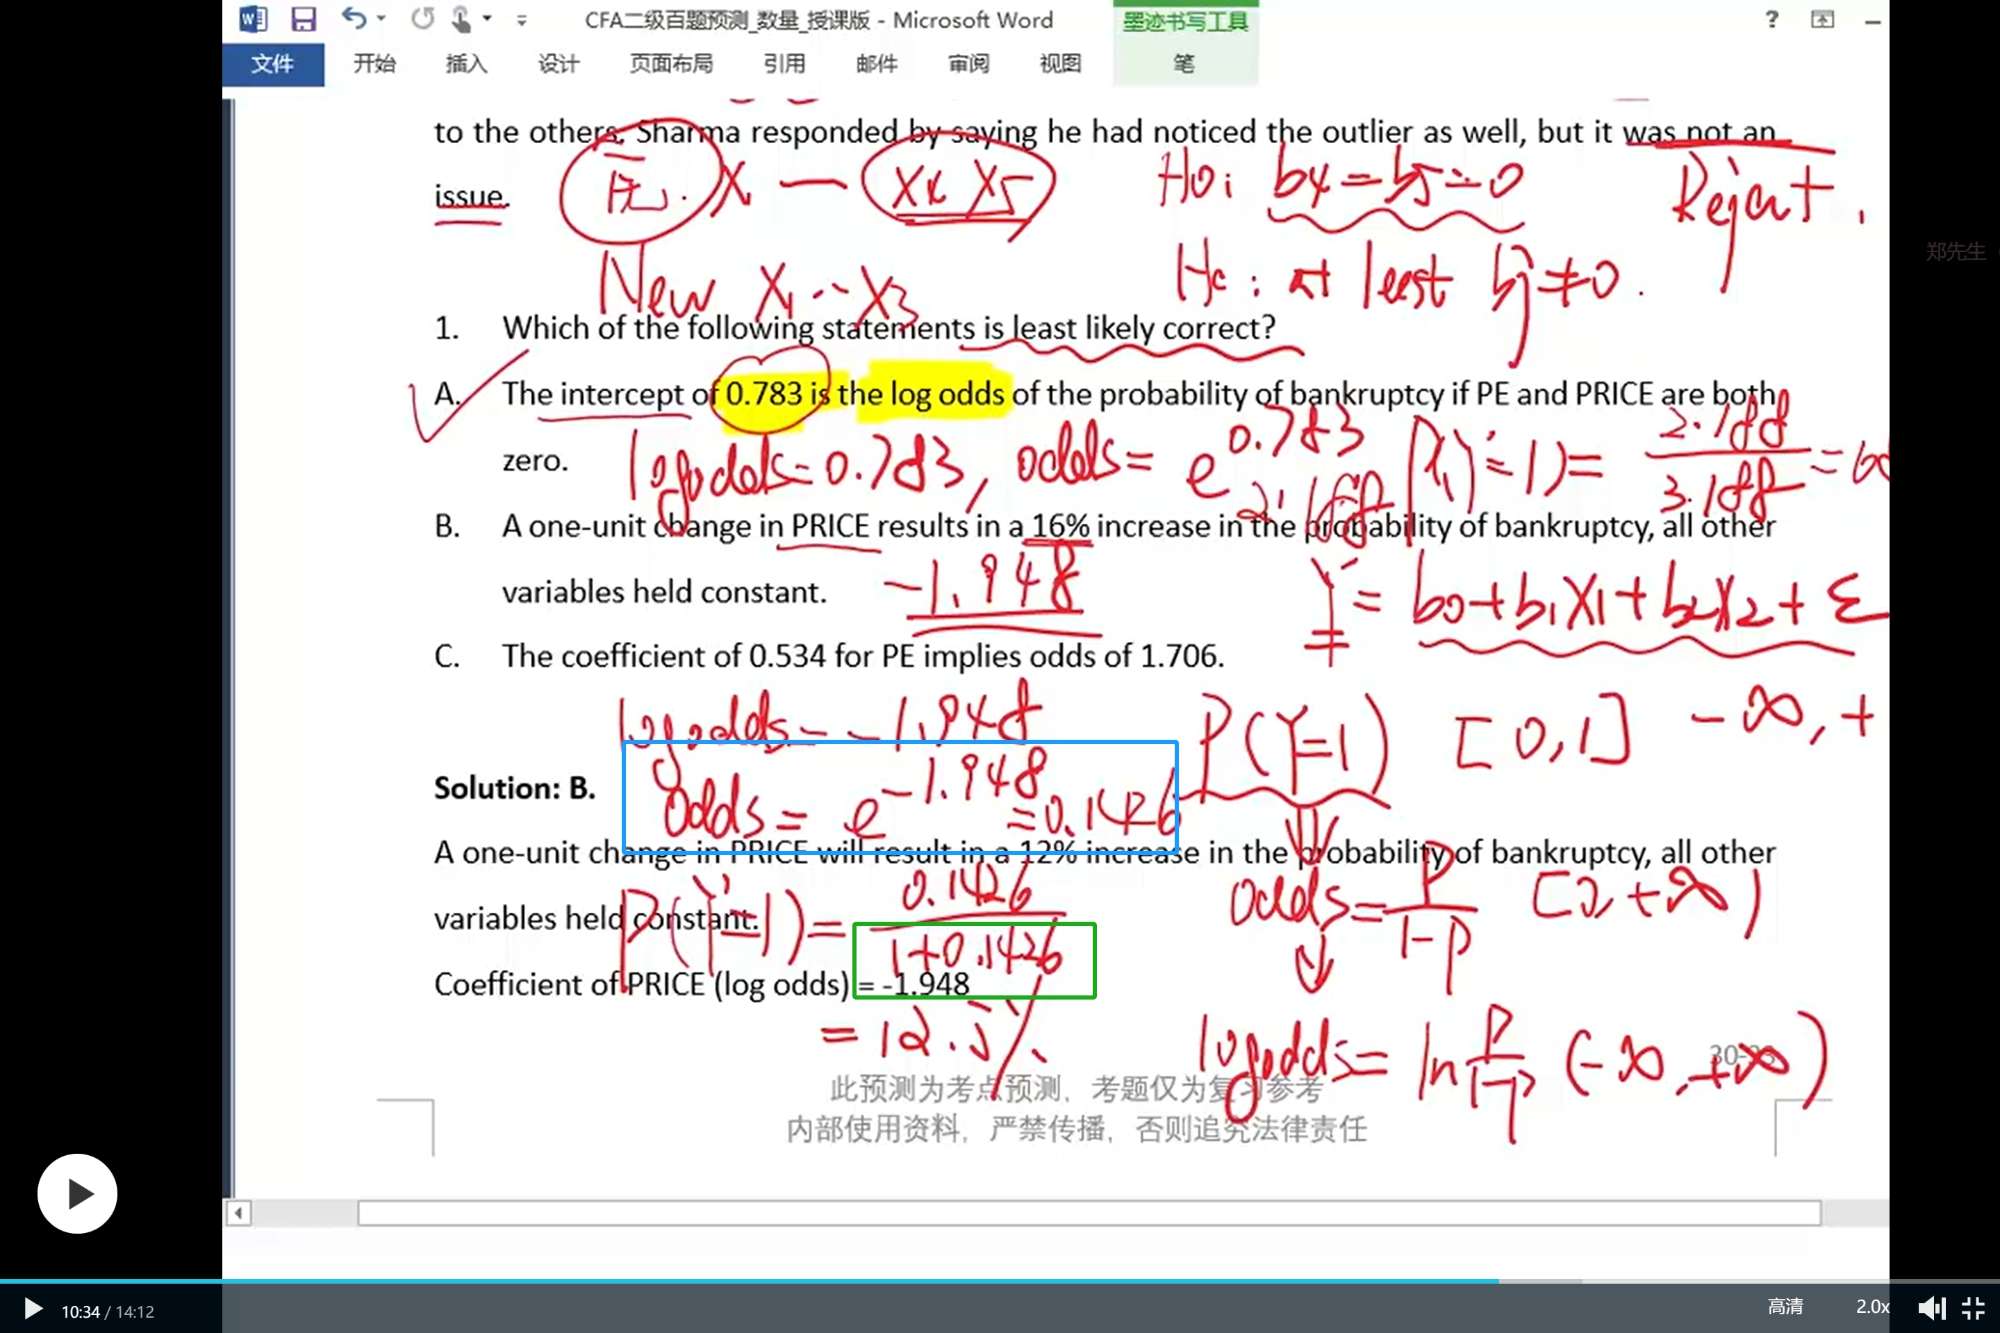 CFA二级百题预测_数量_授课版 - Microsoft Word
墨迹书写工具
?
文件 开始 插入 设计 页面布局 引用 邮件 审阅 视图 笔
to the others. Sharma responded by saying he had noticed the outlier as well, but it was not an
issue.
无. X — X4 X5
H0: b4=b5=0
Reject.
New X1 -- X3
Ha: at least bj≠0.
1. Which of the following statements is least likely correct?
A. The intercept of 0.783 is the log odds of the probability of bankruptcy if PE and PRICE are both
zero.
logodds=0.783, odds= e^0.783
2.188
P(Y=1)= 2.188/3.188 =
B. A one-unit change in PRICE results in a 16% increase in the probability of bankruptcy, all other
variables held constant.
-1.948
Y = b0+b1X1+b2X2+ε
C. The coefficient of 0.534 for PE implies odds of 1.706.
logodds=-1.948
P(Y=1) [0,1] -∞,+
Solution: B.
odds= e^-1.948 =0.1426
A one-unit change in PRICE will result in a 12% increase in the probability of bankruptcy, all other
odds= P/1-P [0,+∞)
variables held constant.
P(Y=1)= 0.1426/1+0.1426
Coefficient of PRICE (log odds) = -1.948
= 12.5%
logodds= ln P/1-P (-∞,+∞)
此预测为考点预测，考题仅为复习参考
内部使用资料，严禁传播，否则追究法律责任
郑先生
10:34 / 14:12
高清 2.0x